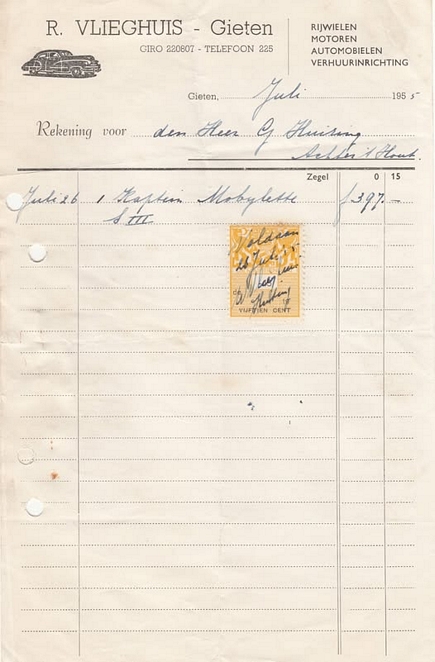 R. VLIEGHUIS - Gieten
GIRO 220807 - TELEFOON 225
RIJWIELEN
MOTOREN
AUTOMOBIELEN
VERHUURINRICHTING
Gieten, Juli 1955
Rekening voor den Heer G Huising
Achter 't Hout.
Zegel 0 15
Juli 26 1 Kaptein Mobylette f 397.—
S III
Voldaan
26 Juli
VIJFTIEN CENT